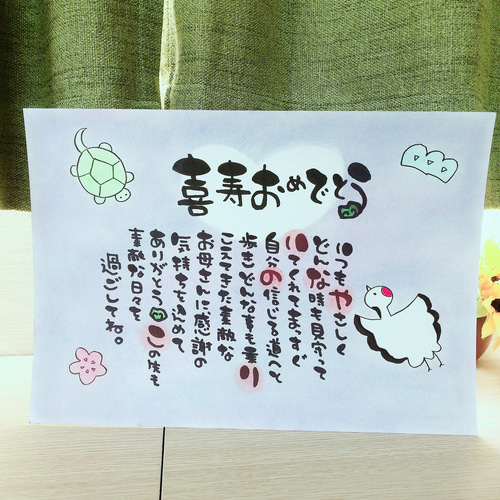 喜寿おめでとう
いつもやさしく
どんな時も見守って
いてくれてまっすぐ
自分の信じる道へと
歩きどんな事も乗り
こえてきた素敵な
お母さんに感謝の
気持ちを込めて
ありがとうこの後も
素敵な日々を
過ごしてね。